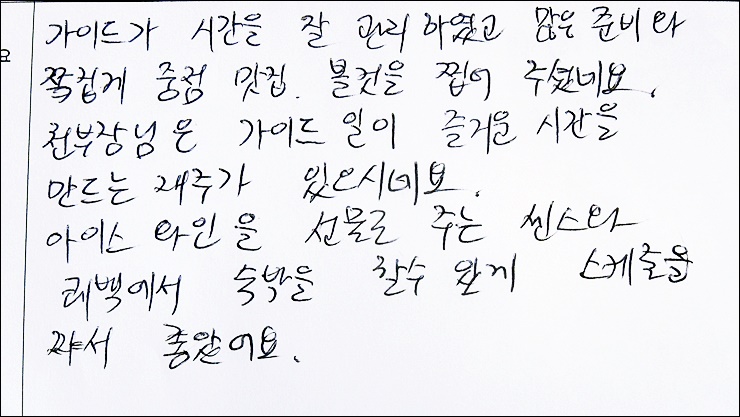 가이드가 시간을 잘 관리 하였고 많은 준비와
쪽집게 중점 맛집. 볼것을 찝어 주셨네요.
천부장님은 가이드 일이 즐거운 시간을
만드는 재주가 있으시네요.
아이스 와인을 선물로 주는 쎈스와
퀘벡에서 숙박을 할수 있게 스케줄을
짜서 좋았어요.
요